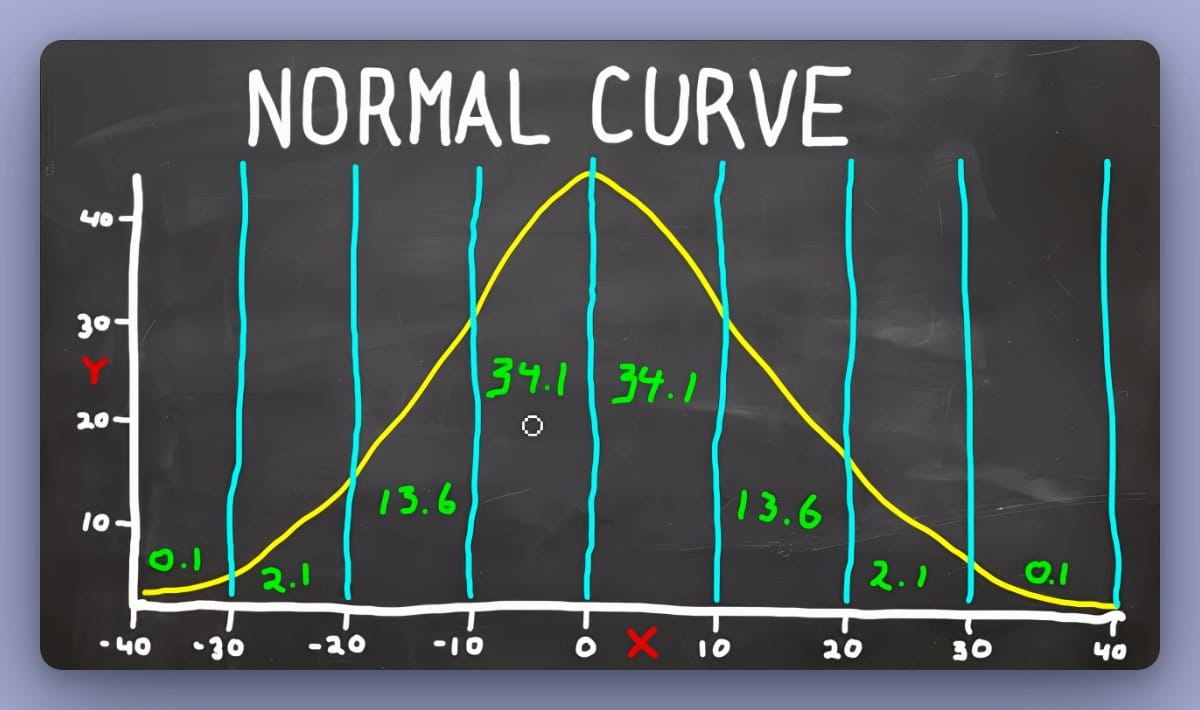 NORMAL CURVE
40
30
Y
20
10
34.1 34.1
13.6 13.6
0.1 2.1 2.1 0.1
-40 -30 -20 -10 0 X 10 20 30 40